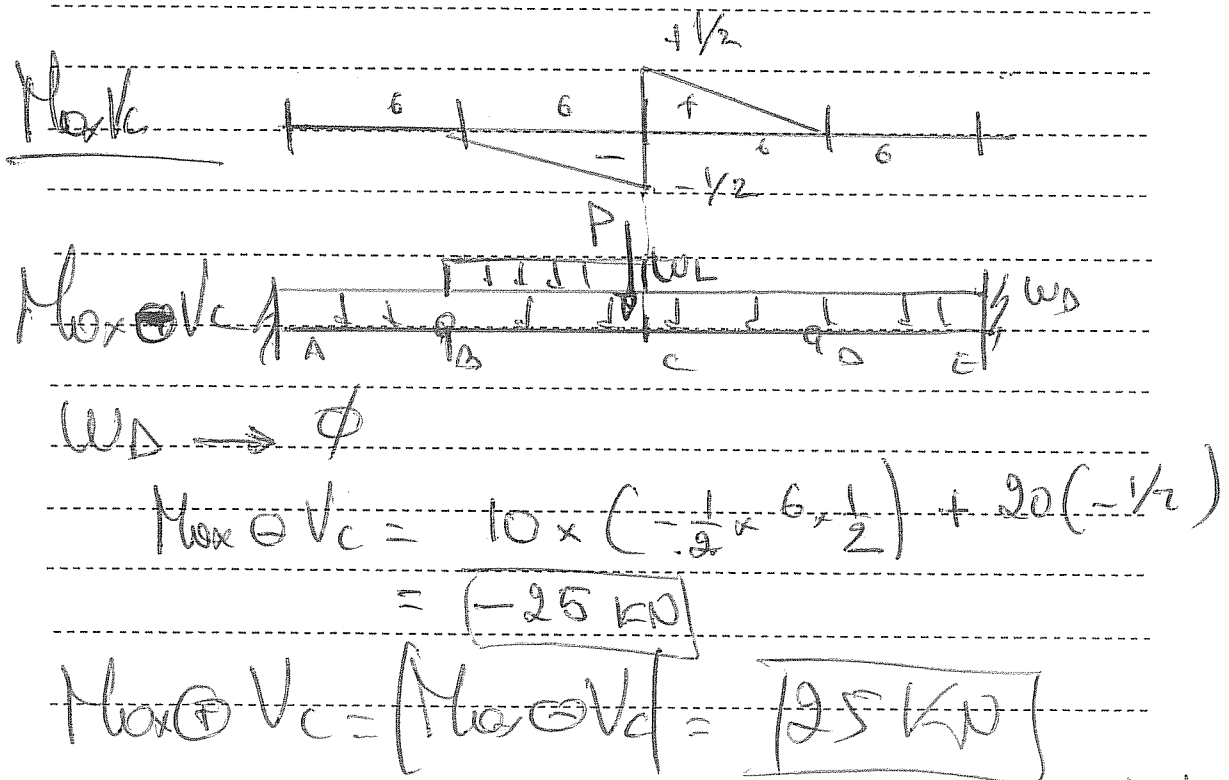 +1/2
Max Vc
6 6 + 6 6
-
-1/2
P
Max ⊖ Vc WL WD
A B C D E
WD → ∅
Max ⊖ Vc = 10 × (-1/2 × 6 × 1/2) + 20(-1/2)
= -25 KN
Max ⊕ Vc = |Max ⊖ Vc| = 25 KN